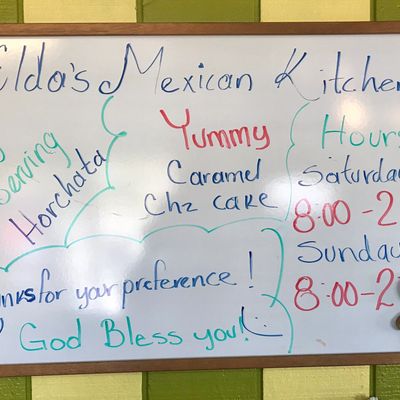 ilda's Mexican Kitchen
Serving
Horchata
Yummy
Caramel
Chz cake
Hours
Saturday
8:00-2
Sunday
8:00-2
nks for your preference!
God Bless you!